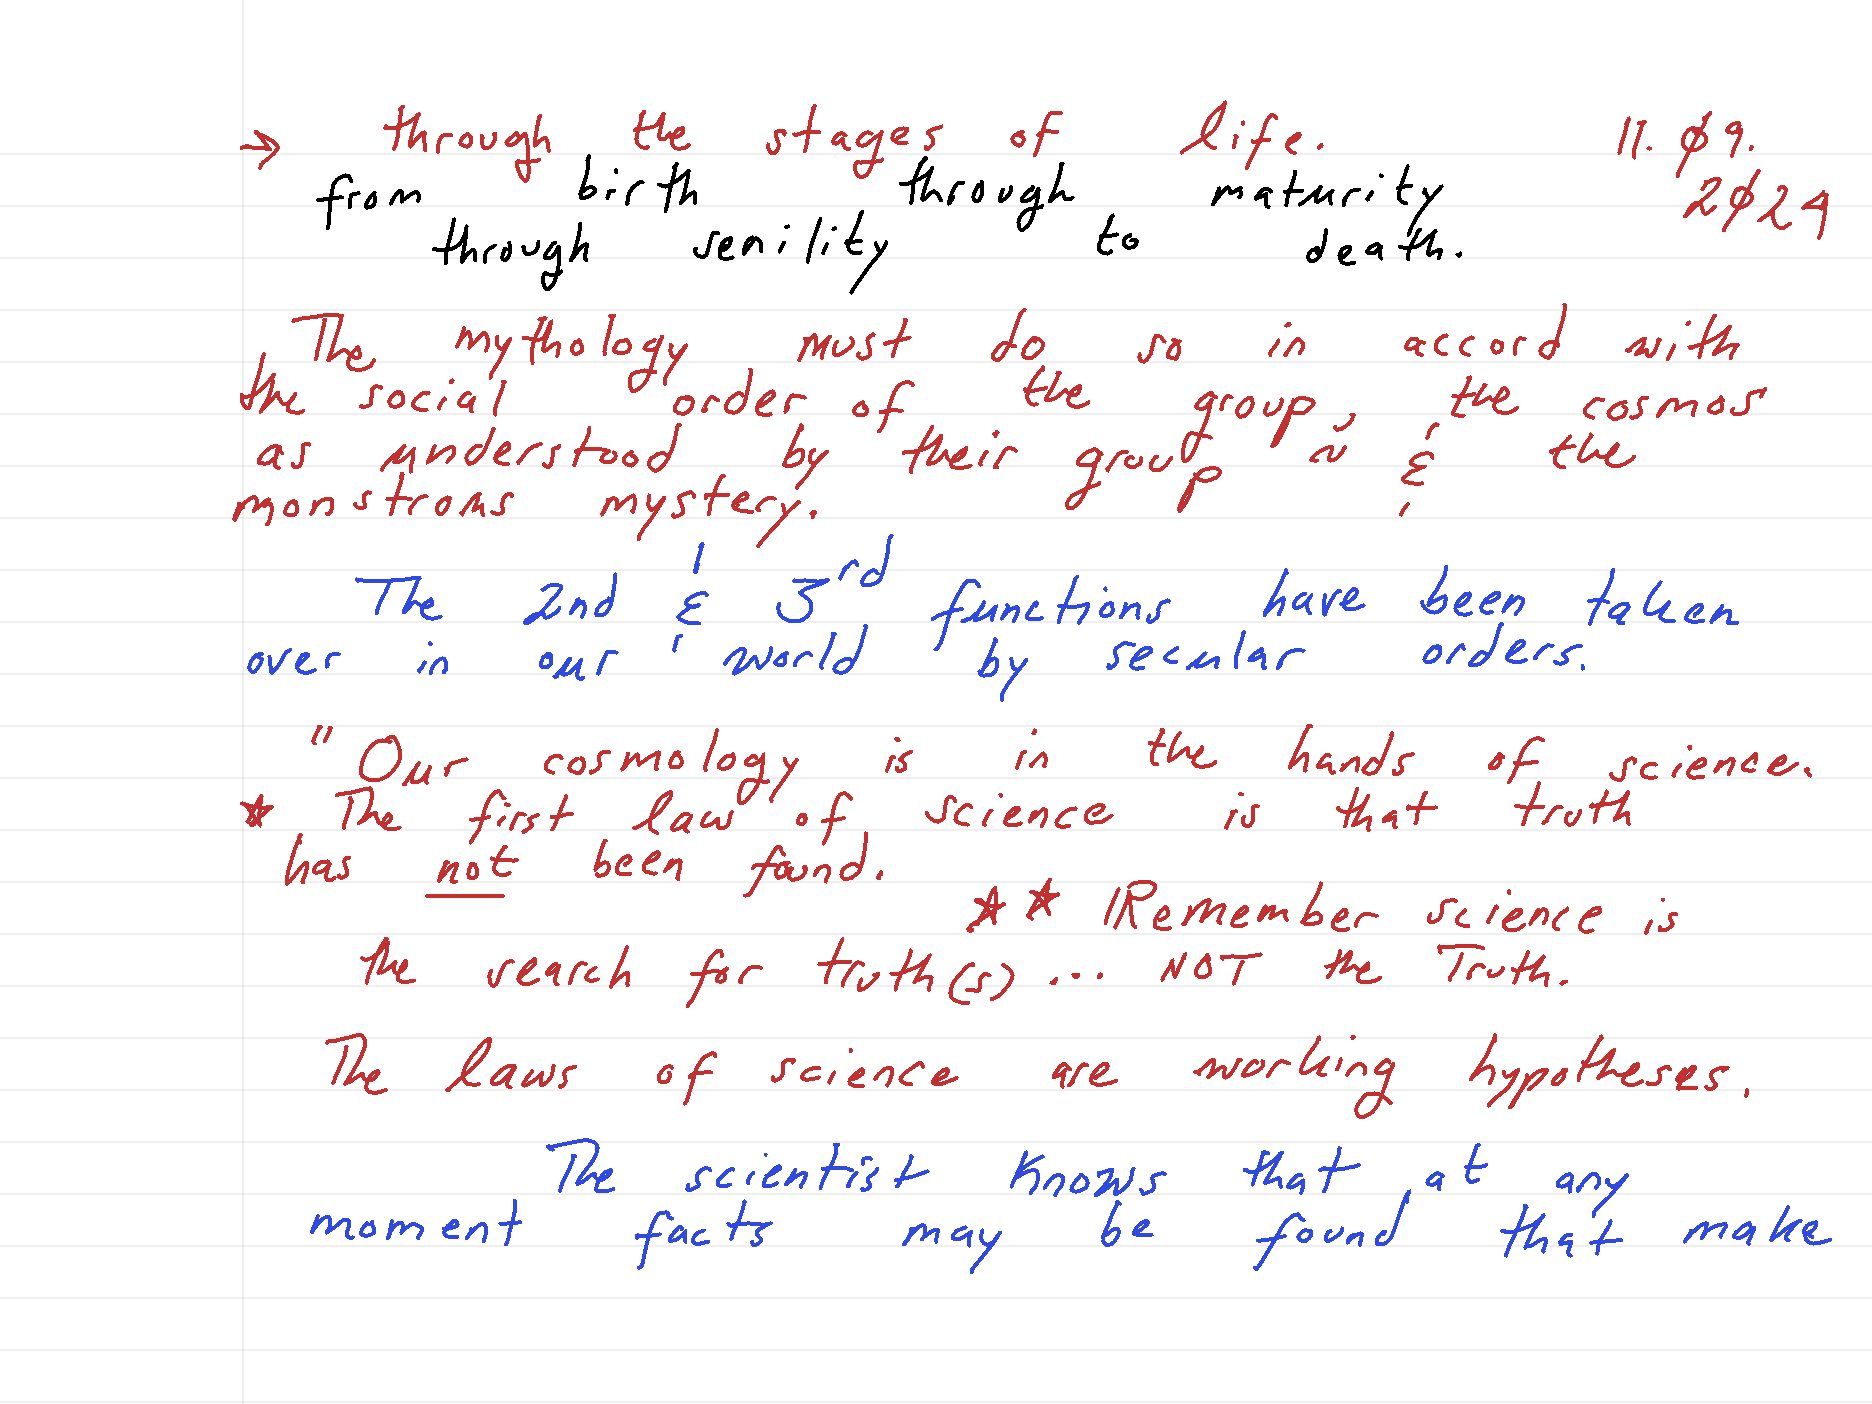 → through the stages of life. 11. ø9.
from birth through maturity 2ø24
through senility to death.
The mythology must do so in accord with
the social order of the group, the cosmos
as understood by their group ~ & the
monstrous mystery.
The 2nd & 3rd functions have been taken
over in our world by secular orders.
"Our cosmology is in the hands of science.
☆ The first law of science is that truth
has not been found.
☆☆ Remember science is
the search for truth(s)... NOT the Truth.
The laws of science are working hypotheses.
The scientist knows that at any
moment facts may be found that make